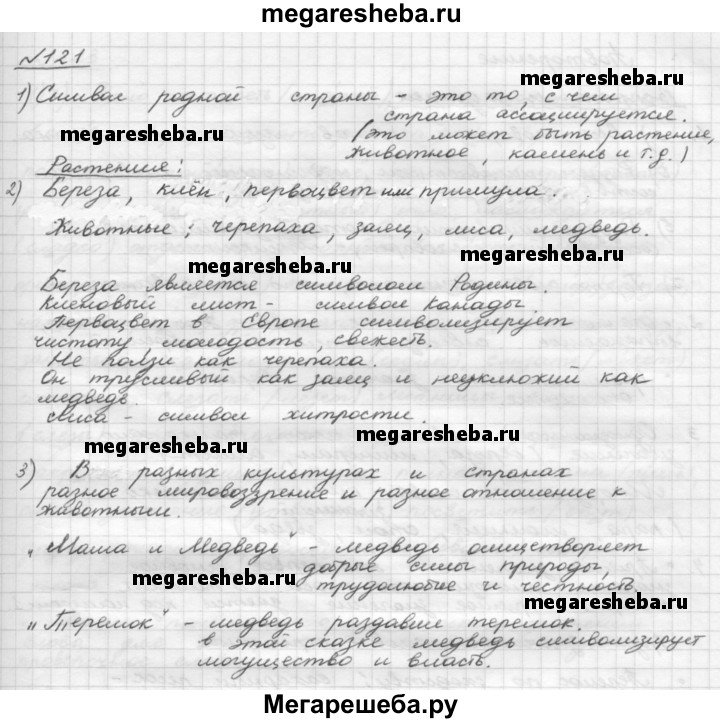 megaresheba.ru
№121
1) Символ родной страны - это то, с чем
страна ассоциируется.
megaresheba.ru
megaresheba.ru
(это может быть растение,
животное, камень и т.д.)
Растения:
2) Береза, клён, первоцвет или примула.
Животные: черепаха, заяц, лиса, медведь.
megaresheba.ru
Береза является символом Родины.
Кленовый лист - символ Канады.
Первоцвет в Европе символизирует
чистоту молодость, свежесть.
megaresheba.ru
Не ползи как черепаха.
Он трусливый как заяц и неуклюжий как
медведь.
Лиса - символ хитрости.
megaresheba.ru
megaresheba.ru
3) В разных культурах и странах
разное мировоззрение и разное отношение к
животным.
„Маша и Медведь" - медведь олицетворяет
добрые силы природы,
megaresheba.ru
трудолюбие и честность
megaresheba.ru
„Теремок" - медведь раздавил теремок.
в этой сказке медведь символизирует
могущество и власть.
Мегарешеба.ру